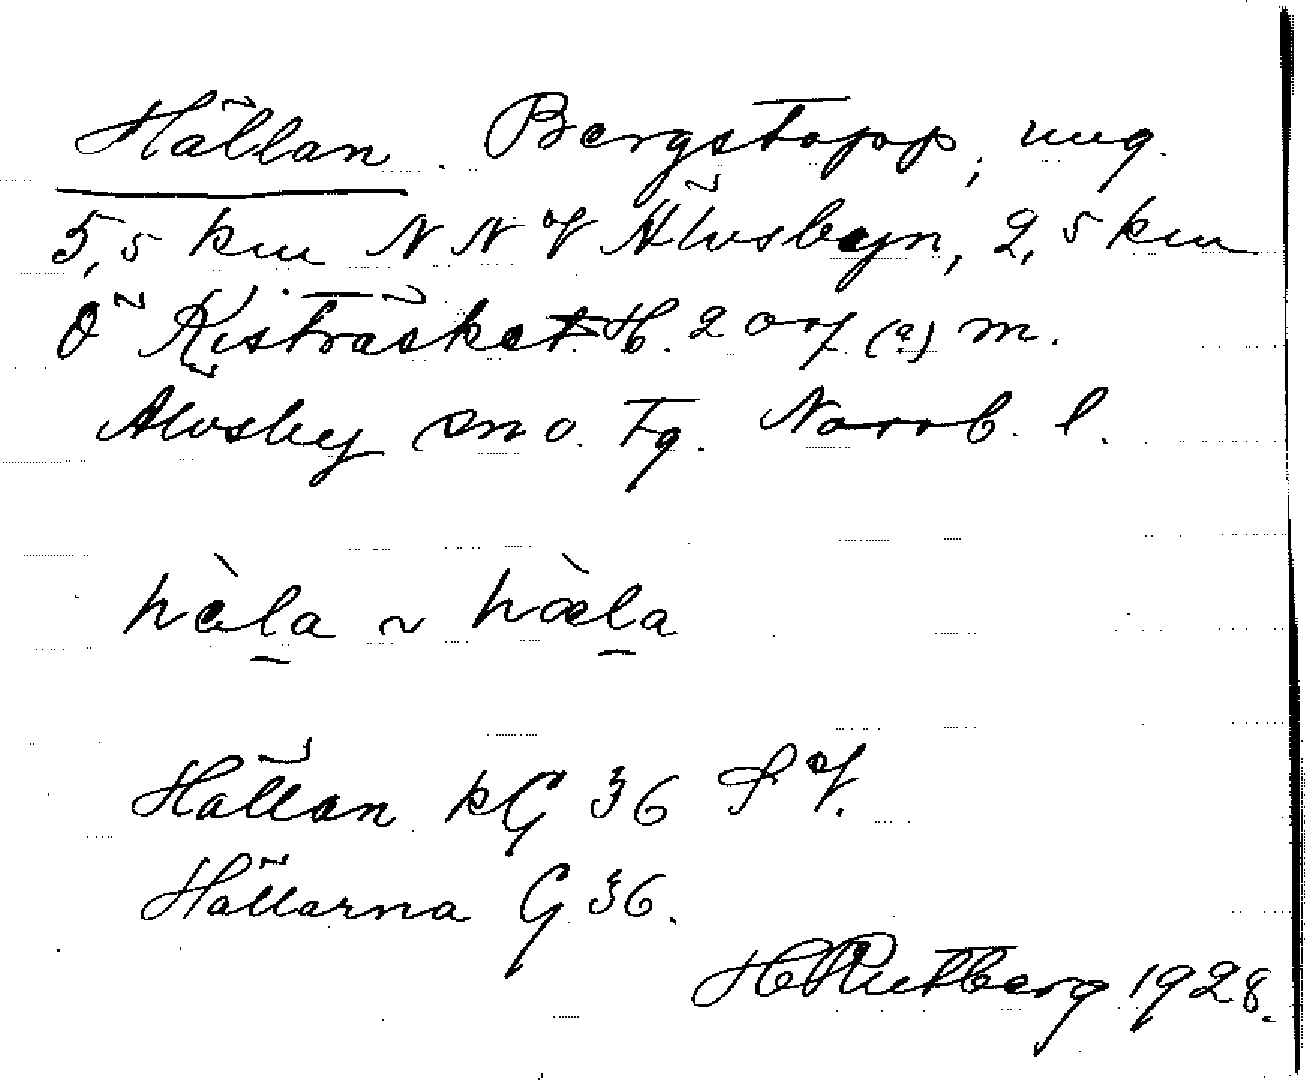 Hällan. Bergstopp, ung.
5,5 km NNV Älvsbyn, 2,5 km
Ö Kisträsket. H. 207 (a) m.
Älvsby sn o. tg. Norrb. l.
hàla ~ hæ̀la
Hällan kG 36 SV.
Hällarna G 36.
H Rutberg 1928.